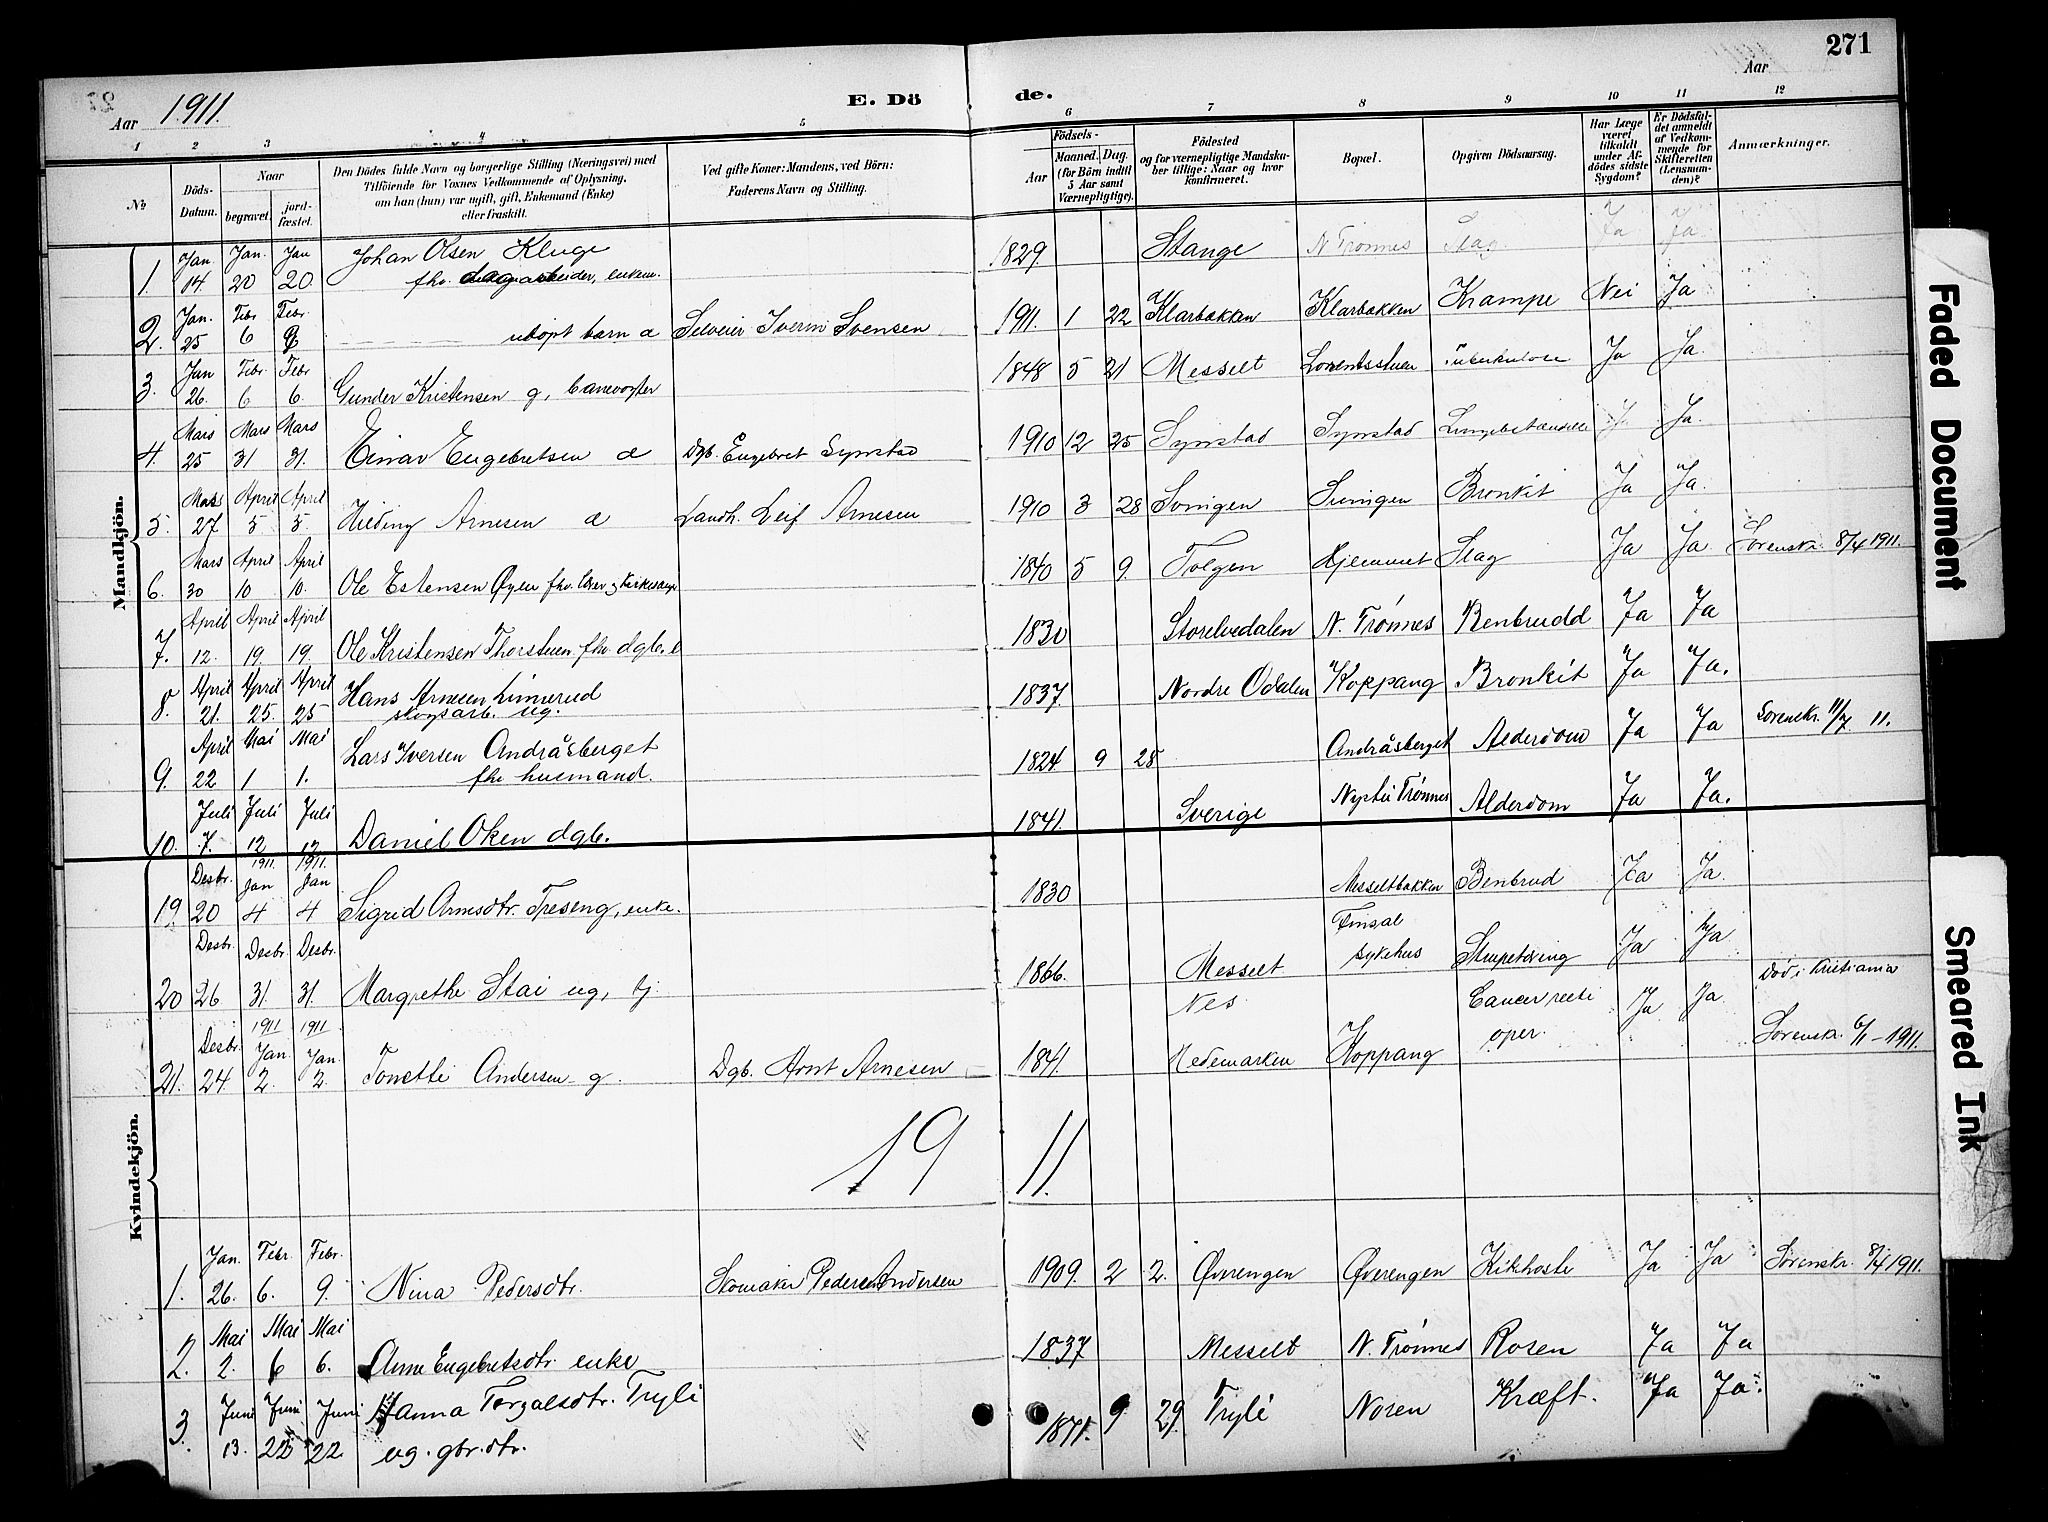 271
Aar 1911.
E. Dö de.
Aar
1 2 3 4 5 6 7 8 9 10 11 12
No.
Döds-Datum.
Naar
begravet.
jord-fæstet.
Den Dödes fulde Navn og borgerlige Stilling (Næringsvei) med
Tilföiende for Voxnes Vedkommende af Oplysning,
om han (hun) var ugift, gift, Enkemand (Enke)
eller fraskilt.
Ved gifte Koner: Mandens, ved Börn:
Faderens Navn og Stilling.
Födsels-
Aar
Maaned. Dag.
(for Börn indtil
5 Aar samt
Værnepligtige).
Födested
og for værnepligtige Mandska-
ber tillige: Naar og hvor
konfirmeret.
Bopæl.
Opgiven Dödsaarsag.
Har Læge
været
tilkaldt
under Af-
dödes sidste
Sygdom?
Er Dödsfal-
det anmeldt
af Vedkom-
mende for
Skifteretten
(Lensman-
den)?
Anmærkninger.
Mandkjön.
1. Jan. 14 Jan. 20 Jan 20 Johan Olsen Kluge fhv. dagarbeider, enkem. 1829. Stange N Trønnes Slag Ja Ja
2. Jan. 25 Febr 6 Febr. udøpt barn d Selveier Iver Svensen 1911. 1 22 Klarbakken Klarbakken Krampe Nei Ja
3. Jan 26. Febr. 6 Febr 6. Gunder Kristensen g, banevogter 1848 5 21 Messelt Lorentsstuen Tuberkulose Ja Ja.
4. Mars 25 Mars 31 Mars 31. Einar Engebretsen d Dgb. Engebret Synstad 1910 12 25 Synstad Synstad Lungebetændelse Ja Ja.
5. Mars 27. April 5 April 5. Hilding Arnesen d Landh. Leif Arnesen 1910 3 28 Bronkit Ja Ja.
6. Mars 30 April 10 April 10. Ole Estensen Øyen fhv. lærer og kirkesanger 1840 5 9. Tolgen Hjemmet Slag Ja Ja Sorenskr. 8/4 1911.
7. April 12. April 19. April 19. Ole Kristensen Thorstuen fhv. dgb. e 1830 Storelvedalen N. Trønnes Benbrudd Ja Ja
8. April 21. April 25. April 25 Hans Arnesen Linnerud skogsarb. ug. 1837 Nordre Odalen Koppang Bronkit Ja Ja.
9. April 22 Mai 1 Mai 1. Lars Iversen Andråsberget fhv husmand. 1824 9 28 Andråsberget Alderdom Ja Ja Sorenskr. 11/7 11.
10. Juli 7. Juli 12 Juli 12 Daniel Oken dgb. 1841. Sverige Nystu Trønnes Alderdom Ja Ja.
Kvindekjön.
19. Desbr. 20 1911. Jan 4 1911. Jan 4 Sigrid Arnesdtr. Treseng, enke. 1830 Messeltbakken Benbrud Ja Ja.
20 Desbr. 26 Desbr. 31. Desbr. 31. Margrethe Stai ug, tj 1866. Messelt Finsal sykehus Strupetæring Ja Ja
21. Desbr. 24 1911 Jan. 2. 1911 Jan. 2. Tonette Andersen g. Dgb. Arnt Arnesen 1841. Nes Hedemarken Koppang Cancer recti oper. Ja Ja Død i Kristiania Sorenskr. 6/1-1911.
19 11.
1. Jan. 26. Febr. 6. Febr. 9. Nina Pedersdtr. Skomaker Peder Andersen 1909. 2 2. Øverengen Øverengen Kikhoste Ja Ja Sorenskr. 8/4 1911.
2. Mai 2. Mai 6 Mai 6. Anne Engebretsdtr. enke 1837 Messelt N. Trønnes Rosen Ja Ja
3. Juni 13. Juni 22 Juni 22. Hanna Torgalsdtr. Tryli ug. gbr.dtr. 1871. 9 29. Tryli Noren Kræft. Ja Ja.
Faded Document
Smeared Ink